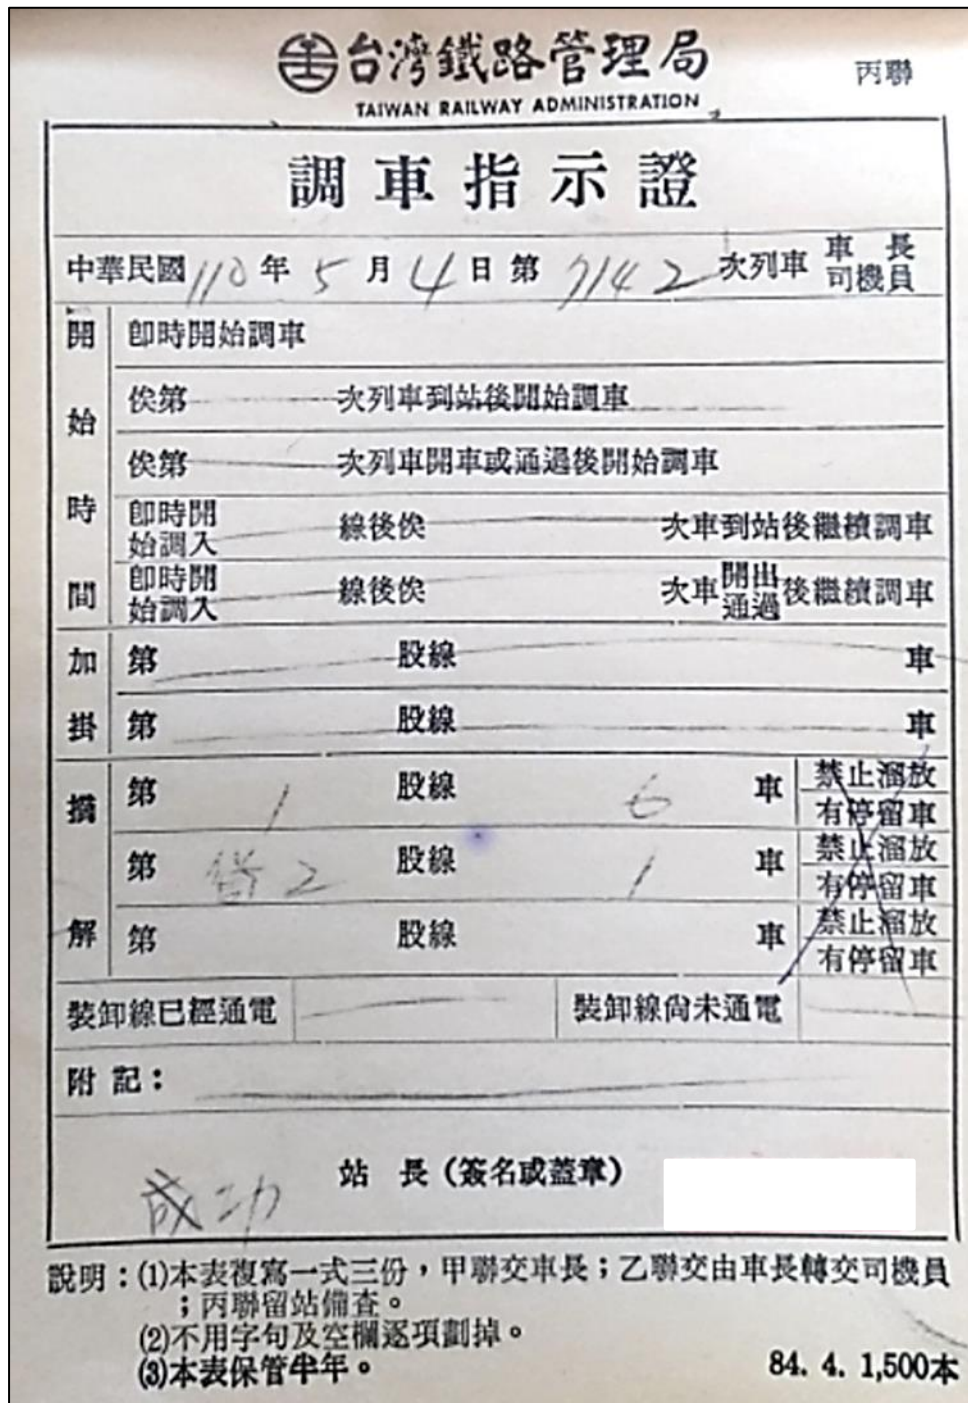 台灣鐵路管理局
TAIWAN RAILWAY ADMINISTRATION
丙聯
調車指示證
中華民國110年5月4日第7142次列車 車長 司機員
開始時間
即時開始調車
俟第 次列車到站後開始調車
俟第 次列車開車或通過後開始調車
即時開始調入 線後俟 次車到站後繼續調車
即時開始調入 線後俟 次車開出通過後繼續調車
加掛
第 股線 車
第 股線 車
摘解
第 1 股線 6 車 禁止溜放 有停留車
第 2 股線 1 車 禁止溜放 有停留車
第 股線 車 禁止溜放 有停留車
裝卸線已經通電 裝卸線尚未通電
附記：
成功 站長（簽名或蓋章）
說明：(1)本表複寫一式三份，甲聯交車長；乙聯交由車長轉交司機員
；丙聯留站備查。
(2)不用字句及空欄逐項劃掉。
(3)本表保管半年。
84. 4. 1,500本